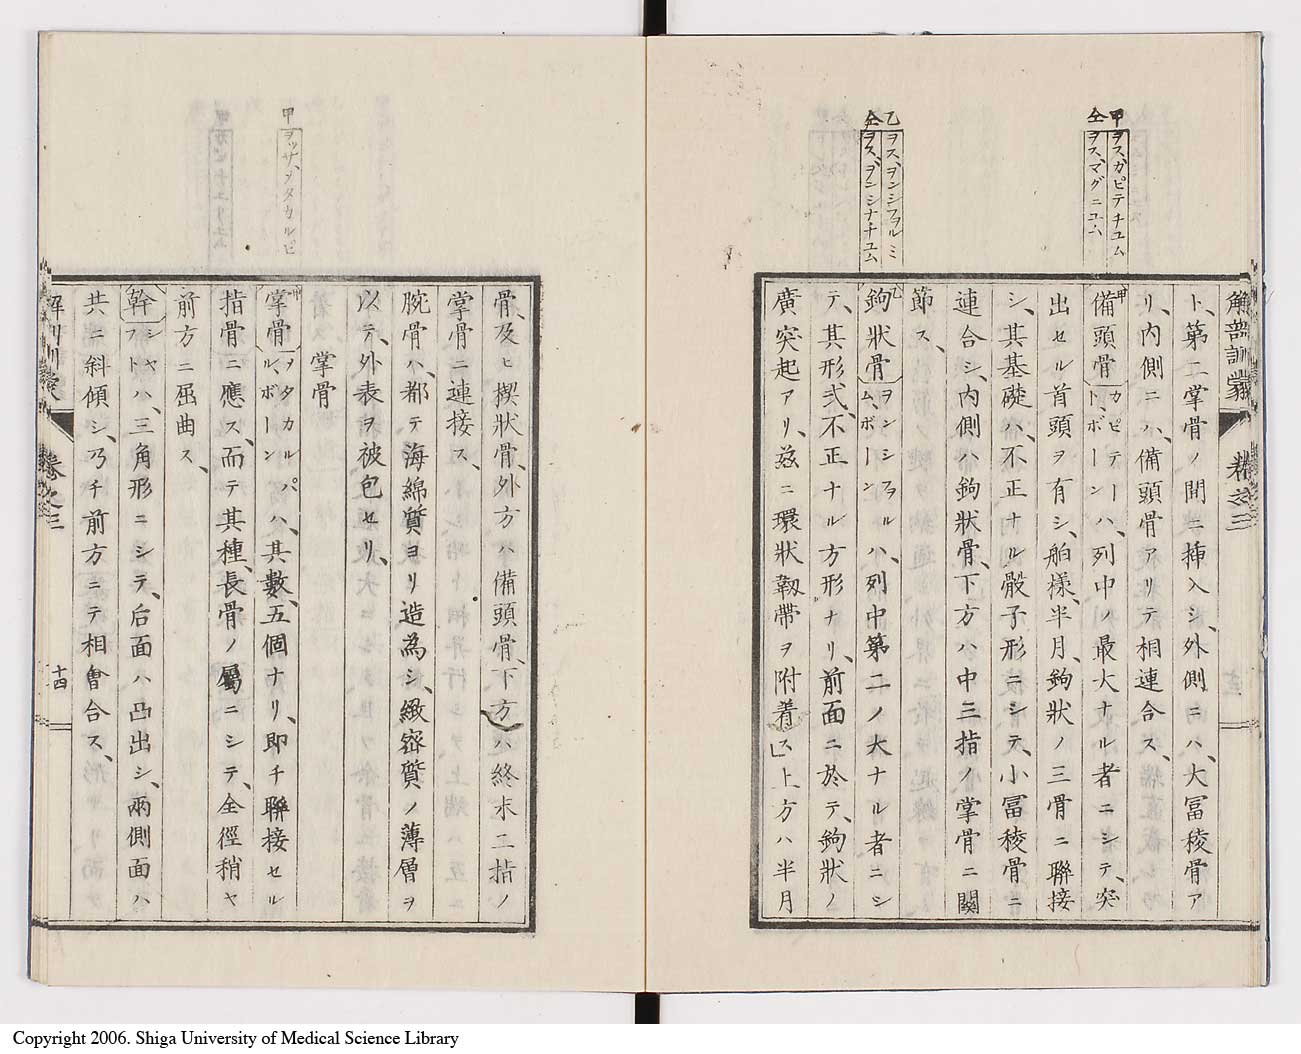 甲ヲスカピテチユム
仝ヲスマグニユム
乙ヲスヲンシフヲルミ
仝ヲスヲンシナチユム
解剖訓蒙 卷之三
ト、第二掌骨ノ間ニ挿入シ、外側ニハ、大冨稜骨ア
リ、內側ニハ、備頭骨アリテ相連合ス、
備頭骨甲カピテートボーンハ、列中ノ最大ナル者ニシテ、突
出セル首頭ヲ有シ、舶樣、半月、鉤狀ノ三骨ニ聯接
シ、其基礎ハ、不正ナル骰子形ニシテ、小冨稜骨ニ
連合シ、內側ハ鉤狀骨、下方ハ中三指ノ掌骨ニ關
節ス、
鉤狀骨乙ヲンシフヲルムボーンハ、列中第二ノ大ナル者ニシ
テ、其形弍、不正ナル方形ナリ、前面ニ於テ、鉤狀ノ
廣突起アリ、玆ニ環狀靱帶ヲ附着ス」上方ハ半月
甲ヲッサメタカルピ
骨、及ヒ楔狀骨、外方ハ備頭骨、下方ハ終末二指ノ
掌骨ニ連接ス、
腕骨ハ、都テ海綿質ヨリ造為シ、緻密質ノ薄層ヲ
以テ、外表ヲ被包セリ、
掌骨
掌骨甲ヲタカルパルボーンハ、其數五個ナリ、即チ聯接セル
指骨ニ應ス、而テ其種、長骨ノ屬ニシテ、全徑稍ヤ
前方ニ屈曲ス、
幹シヤフトハ、三角形ニシテ、后面ハ凸出シ、兩側面ハ
共ニ斜傾シ、乃チ前方ニテ相會合ス、
解剖訓蒙 卷之三 十四
Copyright 2006. Shiga University of Medical Science Library